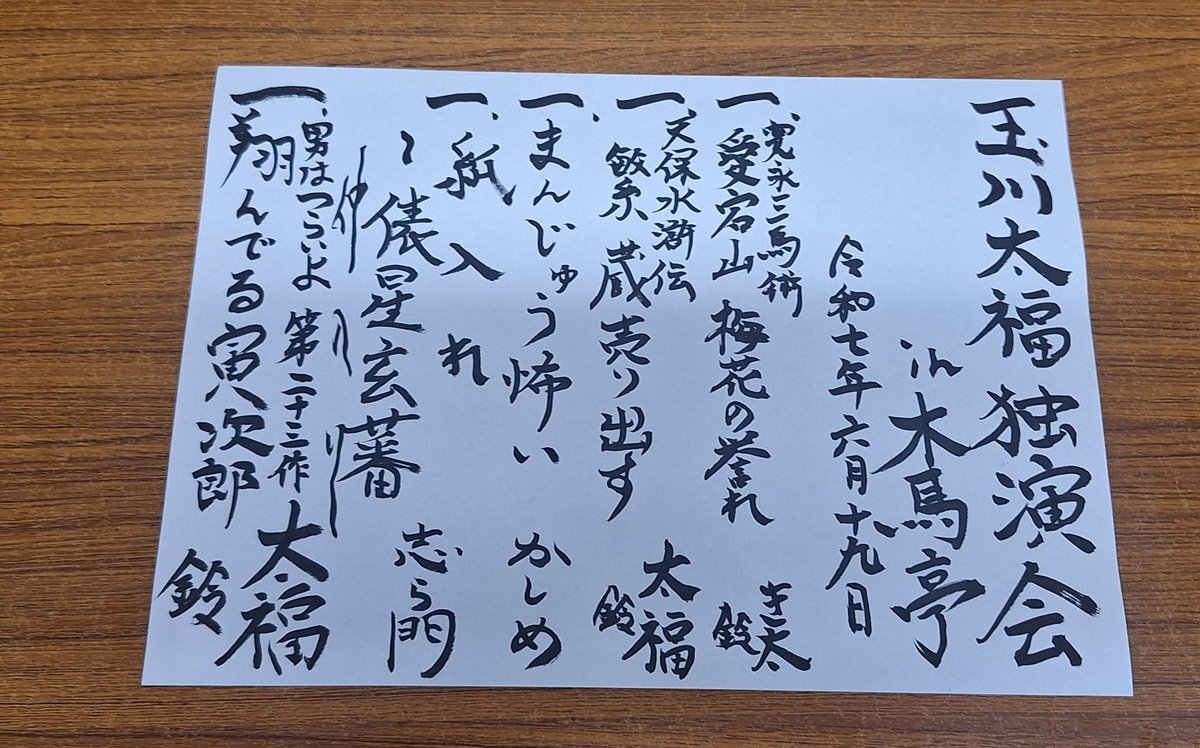 玉川太福 独演会
in 木馬亭
令和七年六月十九日
一、寛永三馬術
愛宕山 梅花の誉れ き太
鈴
一、天保水滸伝
繁蔵 売り出す 太福
鈴
一、まんじゅう怖い かしめ
一、紙入れ
〜俵星玄蕃 志ら門
仲入り
一、男はつらいよ 第二十三作
翔んでる寅次郎 太福
鈴